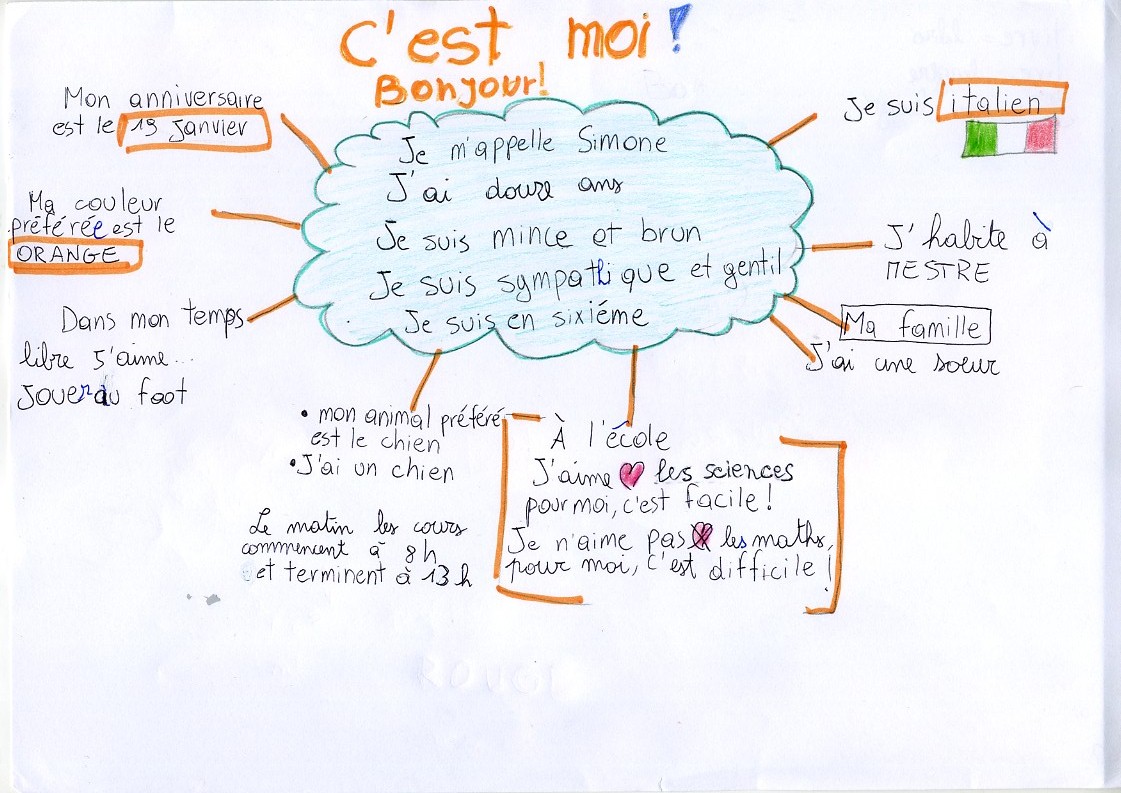 C'est moi!
Bonjour!
Mon anniversaire
est le 19 Janvier
Ma couleur
préférée est le
ORANGE
Dans mon temps
libre J'aime...
Jouer au foot
Je m'appelle Simone
J'ai douze ans
Je suis mince et brun
Je suis sympathique et gentil
Je suis en sixiéme
Je suis italien
J'habite à
MESTRE
Ma famille
J'ai une soeur
• mon animal préféré
est le chien
• J'ai un chien
Le matin les cours
commencent à 8h
et terminent à 13h
À l'école
J'aime les sciences
pour moi, c'est facile!
Je n'aime pas les maths,
pour moi, c'est difficile!